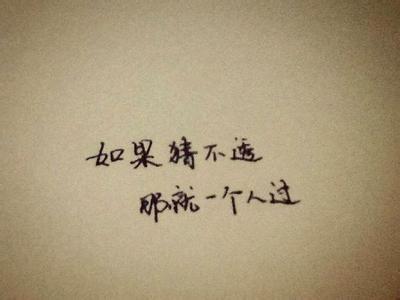 如果猜不透
那就一个人过